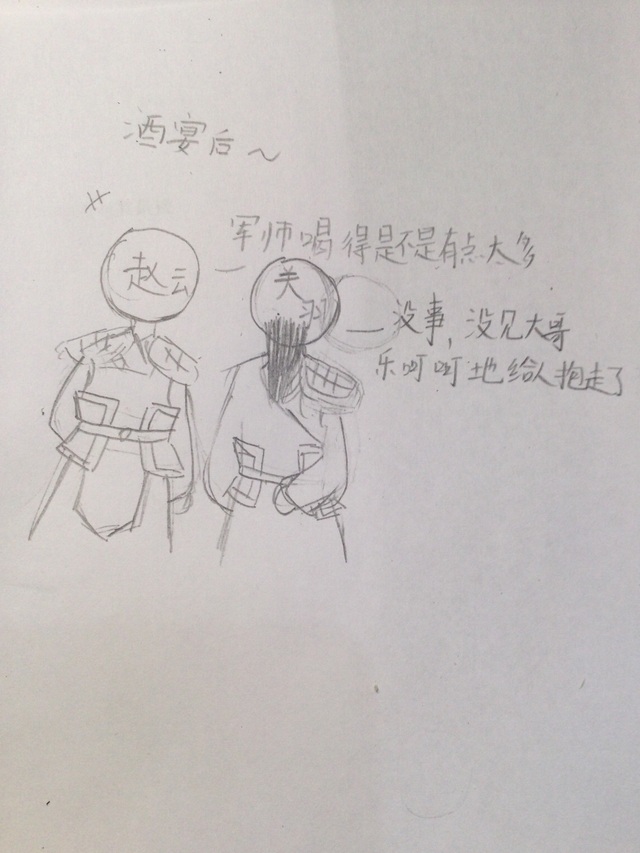 酒宴后~
赵云
一军师喝得是不是有点太多
关
羽
一没事,没见大哥
乐呵呵地给人抱走了